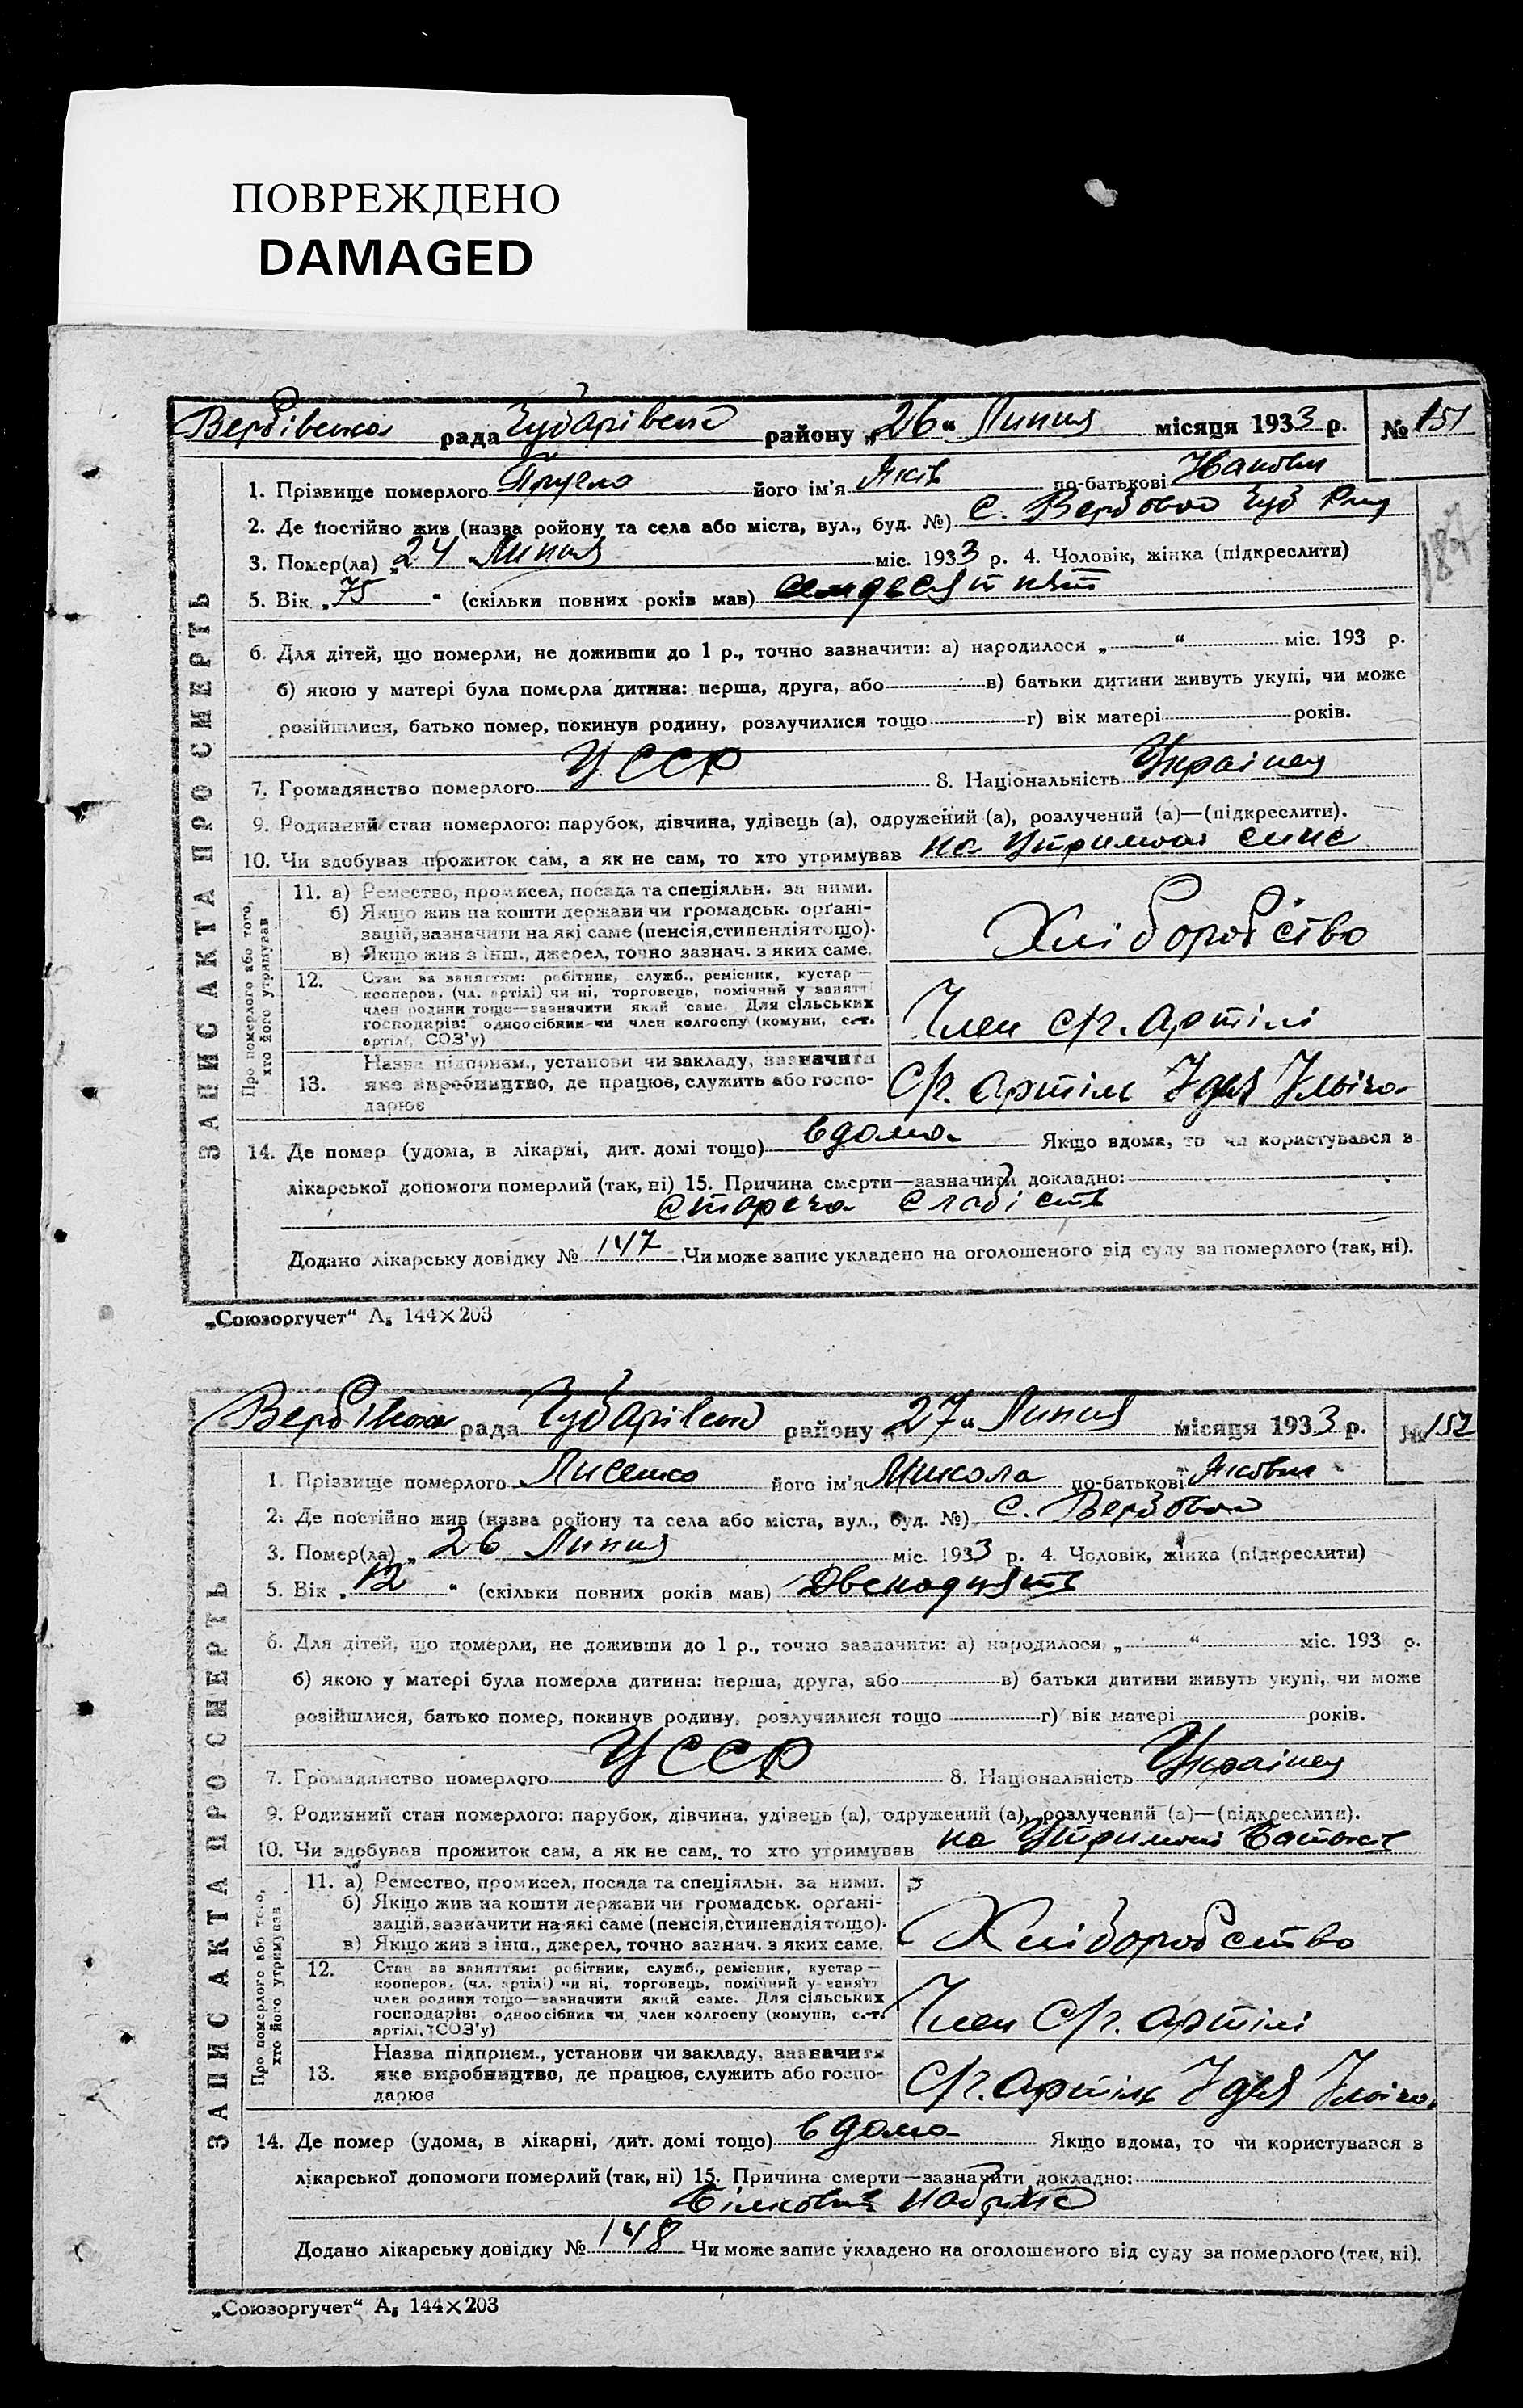 ПОВРЕЖДЕНО
DAMAGED
Вербівська рада Чубарівського району „26“ Липня місяця 1933 р. № 151
1. Прізвище померлого його ім'я Яків по-батькові Іванович
2. Де постійно жив (назва ройону та села або міста, вул., буд. №) с. Вербова Чуб
3. Помер(ла) „24 Липня міс. 1933 р. 4. Чоловік, жінка (підкреслити)
5. Вік „75“ (скільки повних років мав) семдесят пять
6. Для дітей, що померли, не доживши до 1 р., точно зазначити: а) народилося „ “ міс. 193 р.
б) якою у матері була померла дитина: перша, друга, або в) батьки дитини живуть укупі, чи може
розійшлися, батько помер, покинув родину, розлучилися тощо г) вік матері років.
7. Громадянство померлого УССР 8. Національність Українец
9. Родинний стан померлого: парубок, дівчина, удівець (а), одружений (а), розлучений (а)—(підкреслити).
10. Чи здобував прожиток сам, а як не сам, то хто утримував на утримані сина
ЗАПИС АКТА ПРО СМЕРТЬ
Про померлого або того, хто його утримував
11. а) Ремество, промисел, посада та спеціяльн. за ними.
б) Якщо жив на кошти держави чи громадськ. органі-
зацій, зазначити на які саме (пенсія, стипендія тощо).
в) Якщо жив з інш., джерел, точно зазнач. з яких саме.
Хліборобство
12. Стан за заняттям: робітник, служб., ремісник, кустар—
кооперов. (чл. артілі) чи ні, торговець, помічний у занятті
член родини тощо—зазначити який саме. Для сільських
господарів: одноосібник чи член колгоспу (комуни, с.-г.
артілі, СОЗ'у)
Член с/г. артілі
13. Назва підприєм., установи чи закладу, зазначити
яке виробництво, де працює, служить або госпо-
дарює
с/г. артіль Ідея Ілліча
14. Де помер (удома, в лікарні, дит. домі тощо) вдома Якщо вдома, то чи користувався з
лікарської допомоги померлий (так, ні) 15. Причина смерти—зазначити докладно:
Стареча слабість
Додано лікарську довідку № 147 Чи може запис укладено на оголошеного від суду за померлого (так, ні).
„Союзоргучет“ А₅ 144×203
187
Вербівська рада Чубарівського району „27“ Липня місяця 1933 р. № 152
1. Прізвище померлого Лисенко його ім'я Микола по-батькові Якович
2. Де постійно жив (назва ройону та села або міста, вул., буд. №) с. Вербова
3. Помер(ла) „26 Липня міс. 1933 р. 4. Чоловік, жінка (підкреслити)
5. Вік „12“ (скільки повних років мав) Двенадцять
6. Для дітей, що померли, не доживши до 1 р., точно зазначити: а) народилося „ “ міс. 193 р.
б) якою у матері була померла дитина: перша, друга, або в) батьки дитини живуть укупі, чи може
розійшлися, батько помер, покинув родину, розлучилися тощо г) вік матері років.
7. Громадянство померлого УССР 8. Національність Українец
9. Родинний стан померлого: парубок, дівчина, удівець (а), одружений (а), розлучений (а)—(підкреслити).
10. Чи здобував прожиток сам, а як не сам, то хто утримував на утримані батька
ЗАПИС АКТА ПРО СМЕРТЬ
Про померлого або того, хто його утримував
11. а) Ремество, промисел, посада та спеціяльн. за ними.
б) Якщо жив на кошти держави чи громадськ. органі-
зацій, зазначити на які саме (пенсія, стипендія тощо).
в) Якщо жив з інш., джерел, точно зазнач. з яких саме.
Хліборобство
12. Стан за заняттям: робітник, служб., ремісник, кустар—
кооперов. (чл. артілі) чи ні, торговець, помічний у занятті
член родини тощо—зазначити який саме. Для сільських
господарів: одноосібник чи член колгоспу (комуни, с.-г.
артілі, СОЗ'у)
Член с/г. артілі
13. Назва підприєм., установи чи закладу, зазначити
яке виробництво, де працює, служить або госпо-
дарює
с/г. артіль Ідея Ілліча
14. Де помер (удома, в лікарні, дит. домі тощо) вдома Якщо вдома, то чи користувався з
лікарської допомоги померлий (так, ні) 15. Причина смерти—зазначити докладно:
Білковий набряк
Додано лікарську довідку № 148 Чи може запис укладено на оголошеного від суду за померлого (так, ні).
„Союзоргучет“ А₅ 144×203